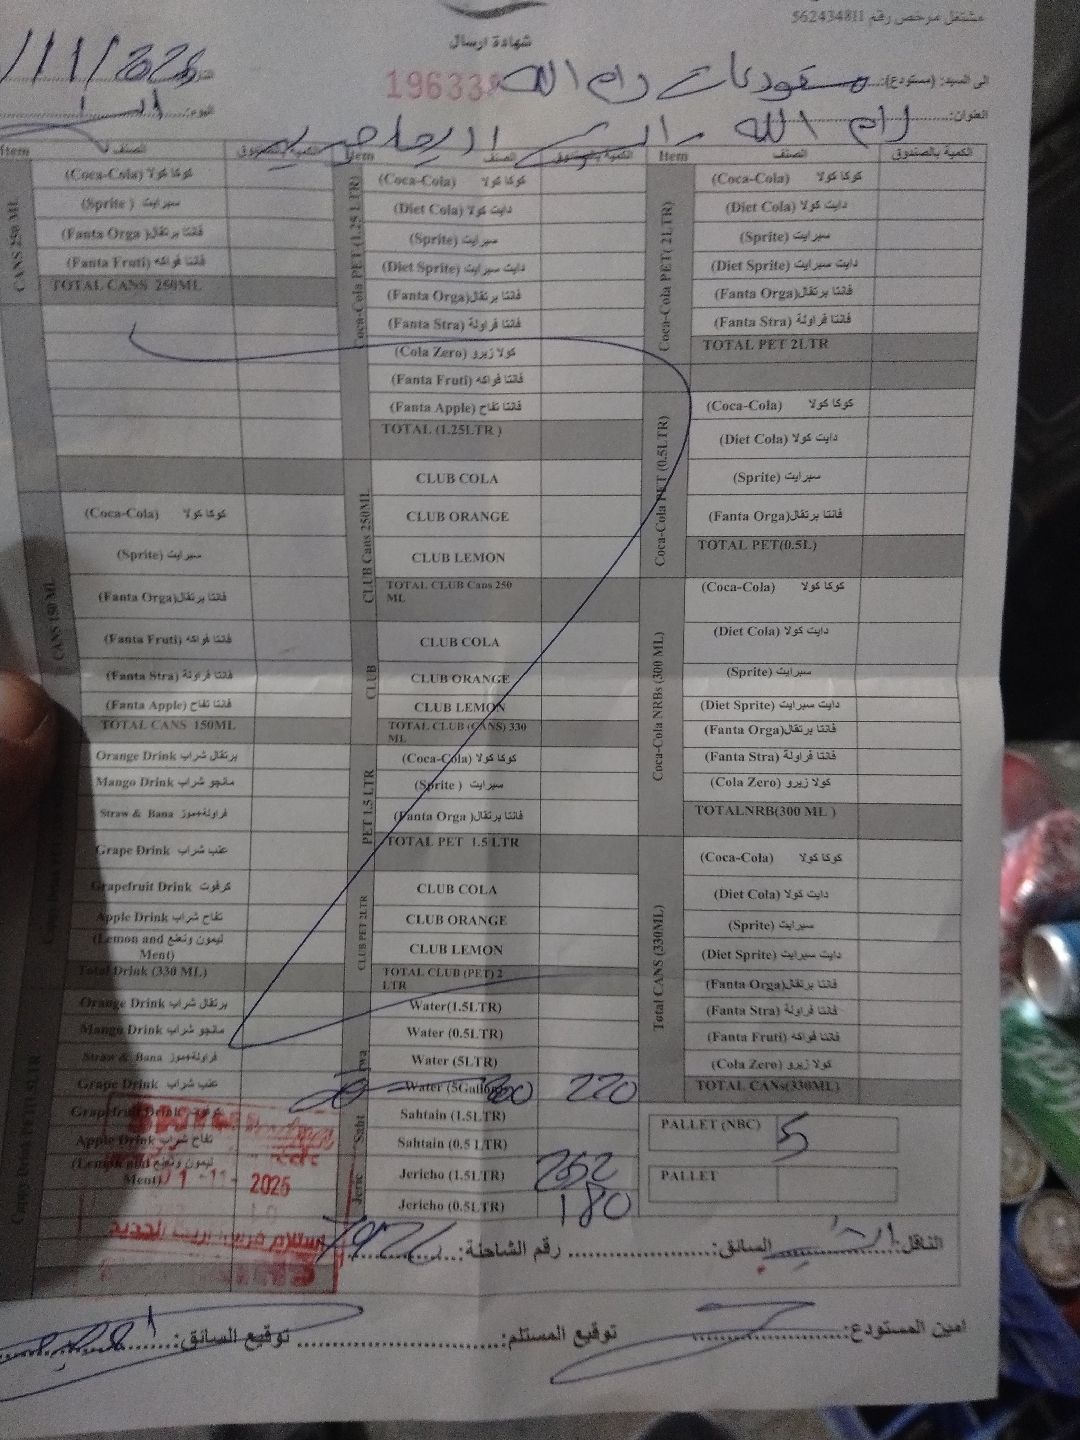 مشتغل مرخص رقم 562434811
شهادة ارسال
196338
الى السيد: (مستودع): مستودعات رام الله
/11/2025
العنوان: رام الله
اليوم:
Item الصنف الكمية بالصندوق
CANS 250 ML
(Coca-Cola) كوكا كولا
(Sprite ) سبرايت
(Fanta Orga )فانتا برتقال
(Fanta Fruti) فانتا فواكه
TOTAL CANS 250ML
CANS 150 ML
(Coca-Cola) كوكا كولا
(Sprite) سبرايت
(Fanta Orga)فانتا برتقال
(Fanta Fruti) فانتا فواكه
(Fanta Stra) فانتا فراولة
(Fanta Apple) فانتا تفاح
TOTAL CANS 150ML
Orange Drink برتقال شراب
Mango Drink مانجو شراب
Straw & Bana فراولة+موز
Grape Drink عنب شراب
Grapefruit Drink كرفوت
Apple Drink تفاح شراب
(Lemon and ليمون ونعنع
Ment)
Total Drink (330 ML)
Orange Drink برتقال شراب
Mango Drink مانجو شراب
Straw & Bana فراولة+موز
Grape Drink عنب شراب
Grapefruit Drink كرفوت
Apple Drink تفاح شراب
(Lemon and ليمون ونعنع
Ment)
01 -11- 2025
Item الصنف الكمية بالصندوق
Coca-Cola PET (1.25 LTR)
(Coca-Cola) كوكا كولا
(Diet Cola) دايت كولا
(Sprite) سبرايت
(Diet Sprite) دايت سبرايت
(Fanta Orga)فانتا برتقال
(Fanta Stra) فانتا فراولة
(Cola Zero) كولا زيرو
(Fanta Fruti) فانتا فواكه
(Fanta Apple) فانتا تفاح
TOTAL (1.25LTR )
CLUB Cans 250ML
CLUB COLA
CLUB ORANGE
CLUB LEMON
TOTAL CLUB Cans 250
ML
CLUB
CLUB COLA
CLUB ORANGE
CLUB LEMON
TOTAL CLUB (CANS) 330
ML
PET 1.5 LTR
(Coca-Cola) كوكا كولا
(Sprite ) سبرايت
(Fanta Orga )فانتا برتقال
TOTAL PET 1.5 LTR
CLUB PET 2LTR
CLUB COLA
CLUB ORANGE
CLUB LEMON
TOTAL CLUB (PET) 2
LTR
Water(1.5LTR)
Water (0.5LTR)
Water (5LTR)
Water (5Gallon) 220
Saht
Sahtain (1.5LTR)
Sahtain (0.5 LTR)
Jeric
Jericho (1.5LTR) 252
Jericho (0.5LTR) 180
Item الصنف الكمية بالصندوق
Coca-Cola PET( 2LTR)
(Coca-Cola) كوكا كولا
(Diet Cola) دايت كولا
(Sprite) سبرايت
(Diet Sprite) دايت سبرايت
(Fanta Orga)فانتا برتقال
(Fanta Stra) فانتا فراولة
TOTAL PET 2LTR
Coca-Cola PET (0.5LTR)
(Coca-Cola) كوكا كولا
(Diet Cola) دايت كولا
(Sprite) سبرايت
(Fanta Orga)فانتا برتقال
TOTAL PET(0.5L)
Coca-Cola NRBs (300 ML)
(Coca-Cola) كوكا كولا
(Diet Cola) دايت كولا
(Sprite) سبرايت
(Diet Sprite) دايت سبرايت
(Fanta Orga)فانتا برتقال
(Fanta Stra) فانتا فراولة
(Cola Zero) كولا زيرو
TOTALNRB(300 ML )
Total CANS (330ML)
(Coca-Cola) كوكا كولا
(Diet Cola) دايت كولا
(Sprite) سبرايت
(Diet Sprite) دايت سبرايت
(Fanta Orga)فانتا برتقال
(Fanta Stra) فانتا فراولة
(Fanta Fruti) فانتا فواكه
(Cola Zero) كولا زيرو
TOTAL CANs(330ML)
PALLET (NBC) 5
PALLET
الناقل: السائق: رقم الشاحلة:
امين المستودع: توقيع المستلم: توقيع السائق: